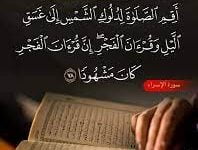 أَقِمِ ٱلصَّلَوٰةَ لِدُلُوكِ ٱلشَّمۡسِ إِلَىٰ غَسَقِ
ٱلَّيۡلِ وَقُرۡءَانَ ٱلۡفَجۡرِۖ إِنَّ قُرۡءَانَ ٱلۡفَجۡرِ
كَانَ مَشۡهُودٗا ٧٨
سورة الإسراء